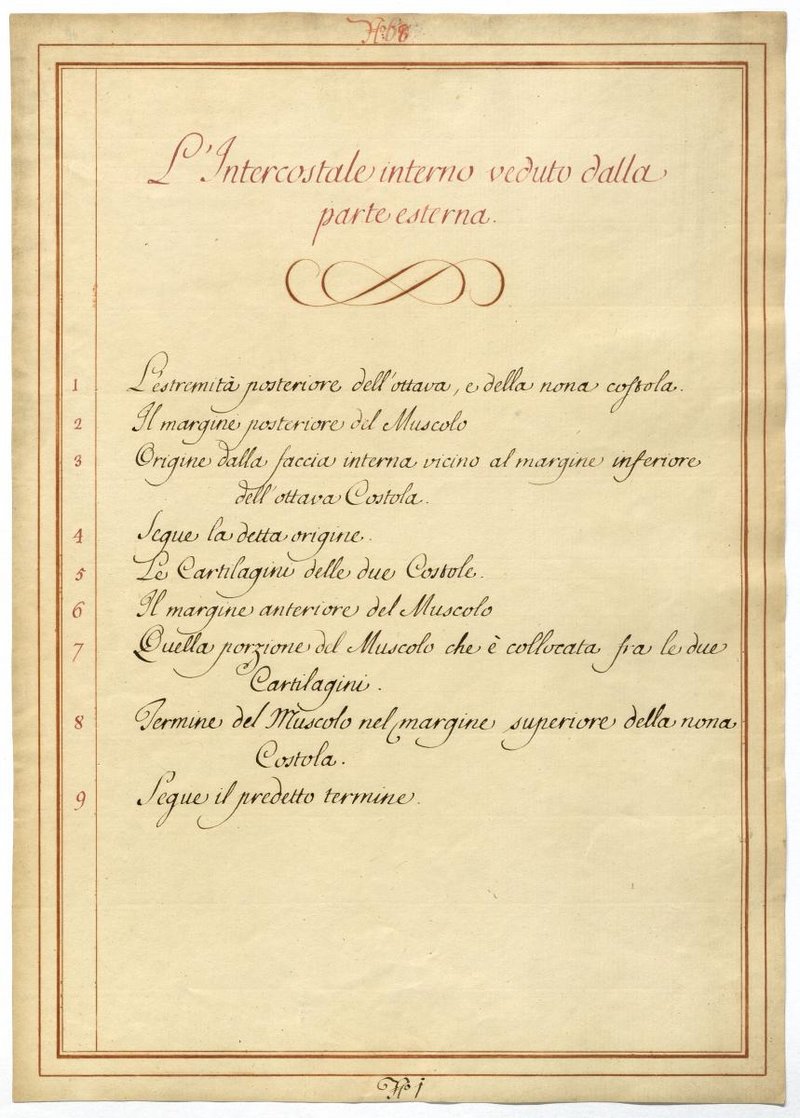 N.º 68
L'Intercostale interno veduto dalla
parte esterna.
1 L'estremità posteriore dell'ottava, e della nona coſtola.
2 Il margine posteriore del Muscolo
3 Origine dalla faccia interna vicino al margine inferiore
dell'ottava Costola.
4 Segue la detta origine.
5 Le Cartilagini delle due Costole.
6 Il margine anteriore del Muscolo
7 Quella porzione del Muscolo che è collocata fra le due
Cartilagini.
8 Termine del Muscolo nel margine superiore della nona
Costola.
9 Segue il predetto termine.